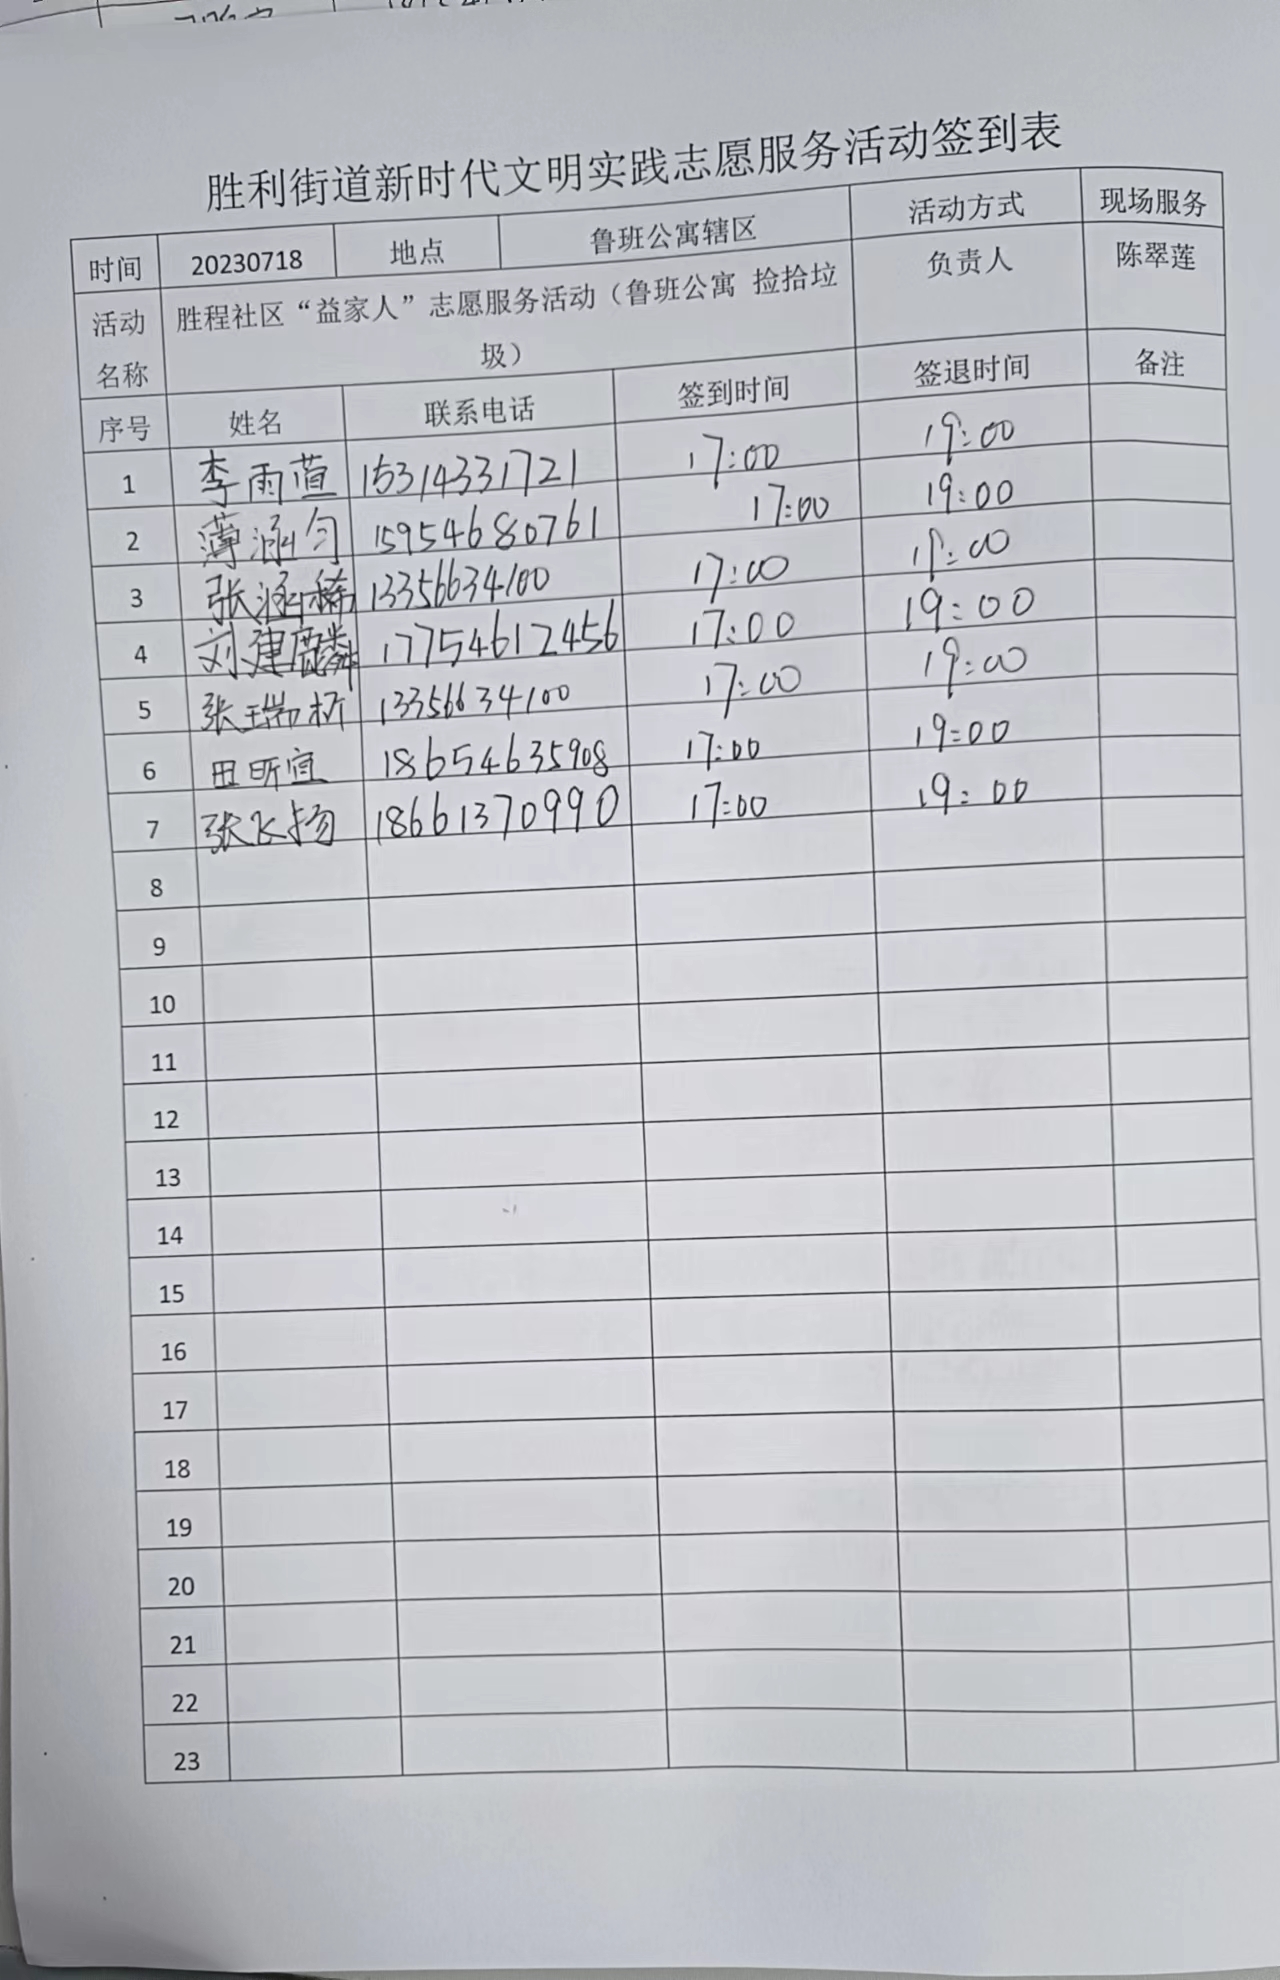 胜利街道新时代文明实践志愿服务活动签到表
时间 20230718 地点 鲁班公寓辖区 活动方式 现场服务
活动名称 胜程社区“益家人”志愿服务活动（鲁班公寓 捡拾垃圾） 负责人 陈翠莲
序号 姓名 联系电话 签到时间 签退时间 备注
1 李雨萱 15314331721 17:00 19:00
2 薄涵匀 15954680761 17:00 19:00
3 张涵稀 13356634100 17:00 19:00
4 刘建麟 17754612456 17:00 19:00
5 张瑞析 13356634100 17:00 19:00
6 田昕宜 18654635908 17:00 19:00
7 张飞扬 18661370990 17:00 19:00
8
9
10
11
12
13
14
15
16
17
18
19
20
21
22
23